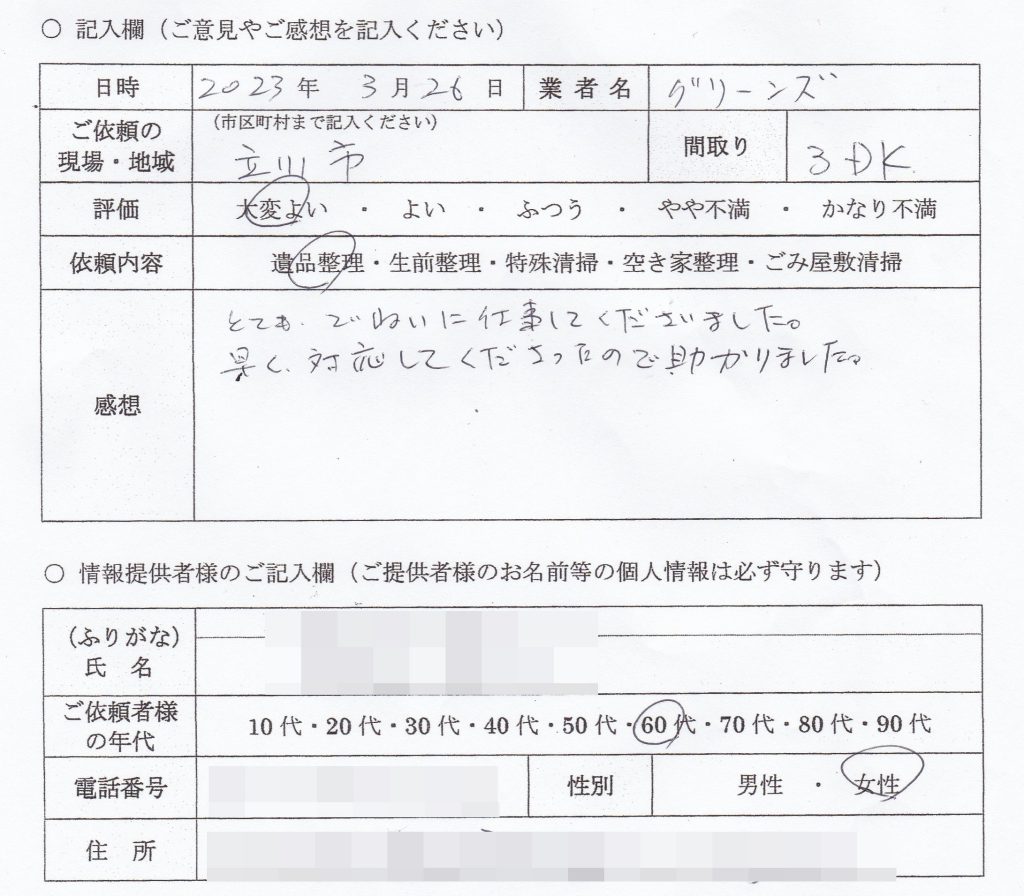 ○ 記入欄（ご意見やご感想を記入ください）
日時 2023年 3月26日 業者名 グリーンズ
ご依頼の現場・地域 （市区町村まで記入ください） 立川市 間取り 3DK
評価 大変よい ・ よい ・ ふつう ・ やや不満 ・ かなり不満
依頼内容 遺品整理・生前整理・特殊清掃・空き家整理・ごみ屋敷清掃
感想
とても、ていねいに仕事してくださいました。
早く、対応してくださったので助かりました。
○ 情報提供者様のご記入欄（ご提供者様のお名前等の個人情報は必ず守ります）
（ふりがな）
氏 名
ご依頼者様の年代 10代・20代・30代・40代・50代・60代・70代・80代・90代
電話番号 性別 男性 ・ 女性
住 所